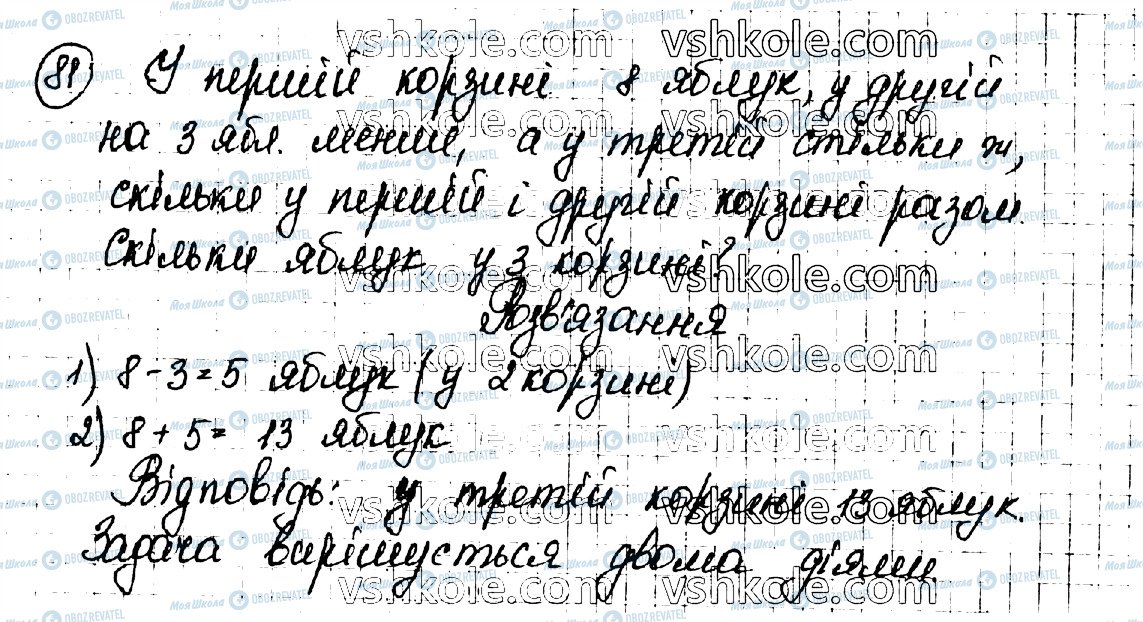 81 У першій корзині 8 яблук, у другій
на 3 ябл. менше, а у третій стільки ж,
скільки у першій і другій корзині разом.
Скільки яблук у 3 корзині?
Розв'язання
1) 8 - 3 = 5 яблук (у 2 корзині)
2) 8 + 5 = 13 яблук
Відповідь: у третій корзині 13 яблук.
Задача вирішується двома діями
vshkole.com
Моя Школа OBOZREVATEL